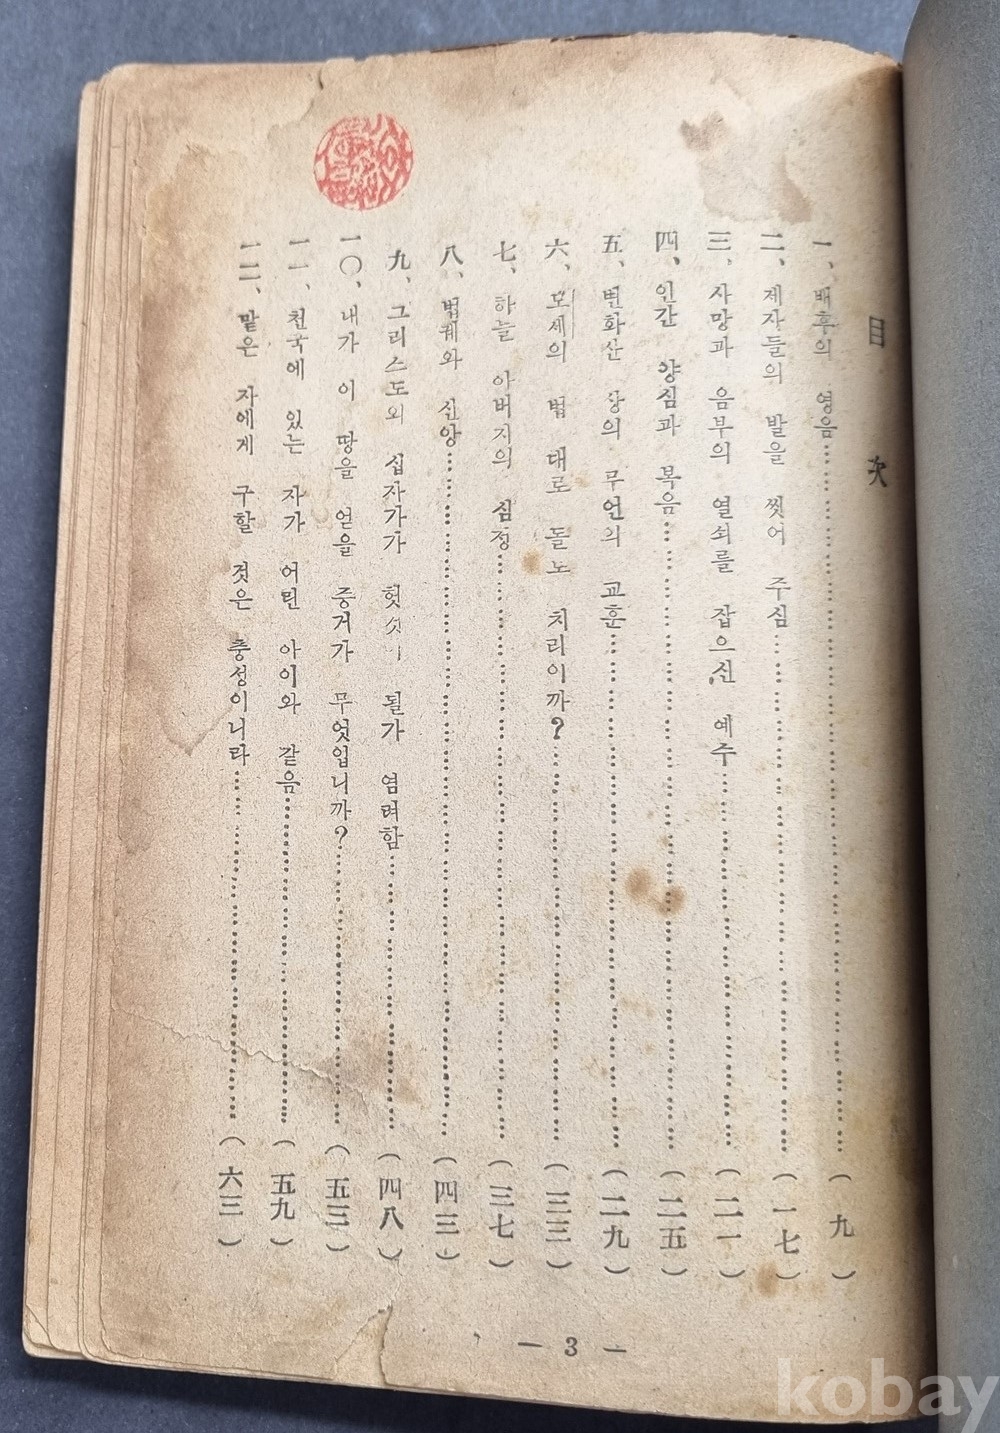 目次
一、배후의 영음……(九)
二、제자들의 발을 씻어 주심……(一七)
三、사망과 음부의 열쇠를 잡으신 예수……(二一)
四、인간 양심과 복음……(二五)
五、변화산 상의 무언의 교훈……(二九)
六、모세의 법 대로 돌노 치리이까?……(三三)
七、하늘 아버지의 심정……(三七)
八、법궤와 신앙……(四三)
九、그리스도의 십자가가 헛것이 될가 염려함……(四八)
一〇、내가 이 땅을 얻을 증거가 무엇입니까?……(五三)
一一、천국에 있는 자가 어린 아이와 같음……(五九)
一二、맡은 자에게 구할 것은 충성이니라……(六三)
— 3 —
kobay